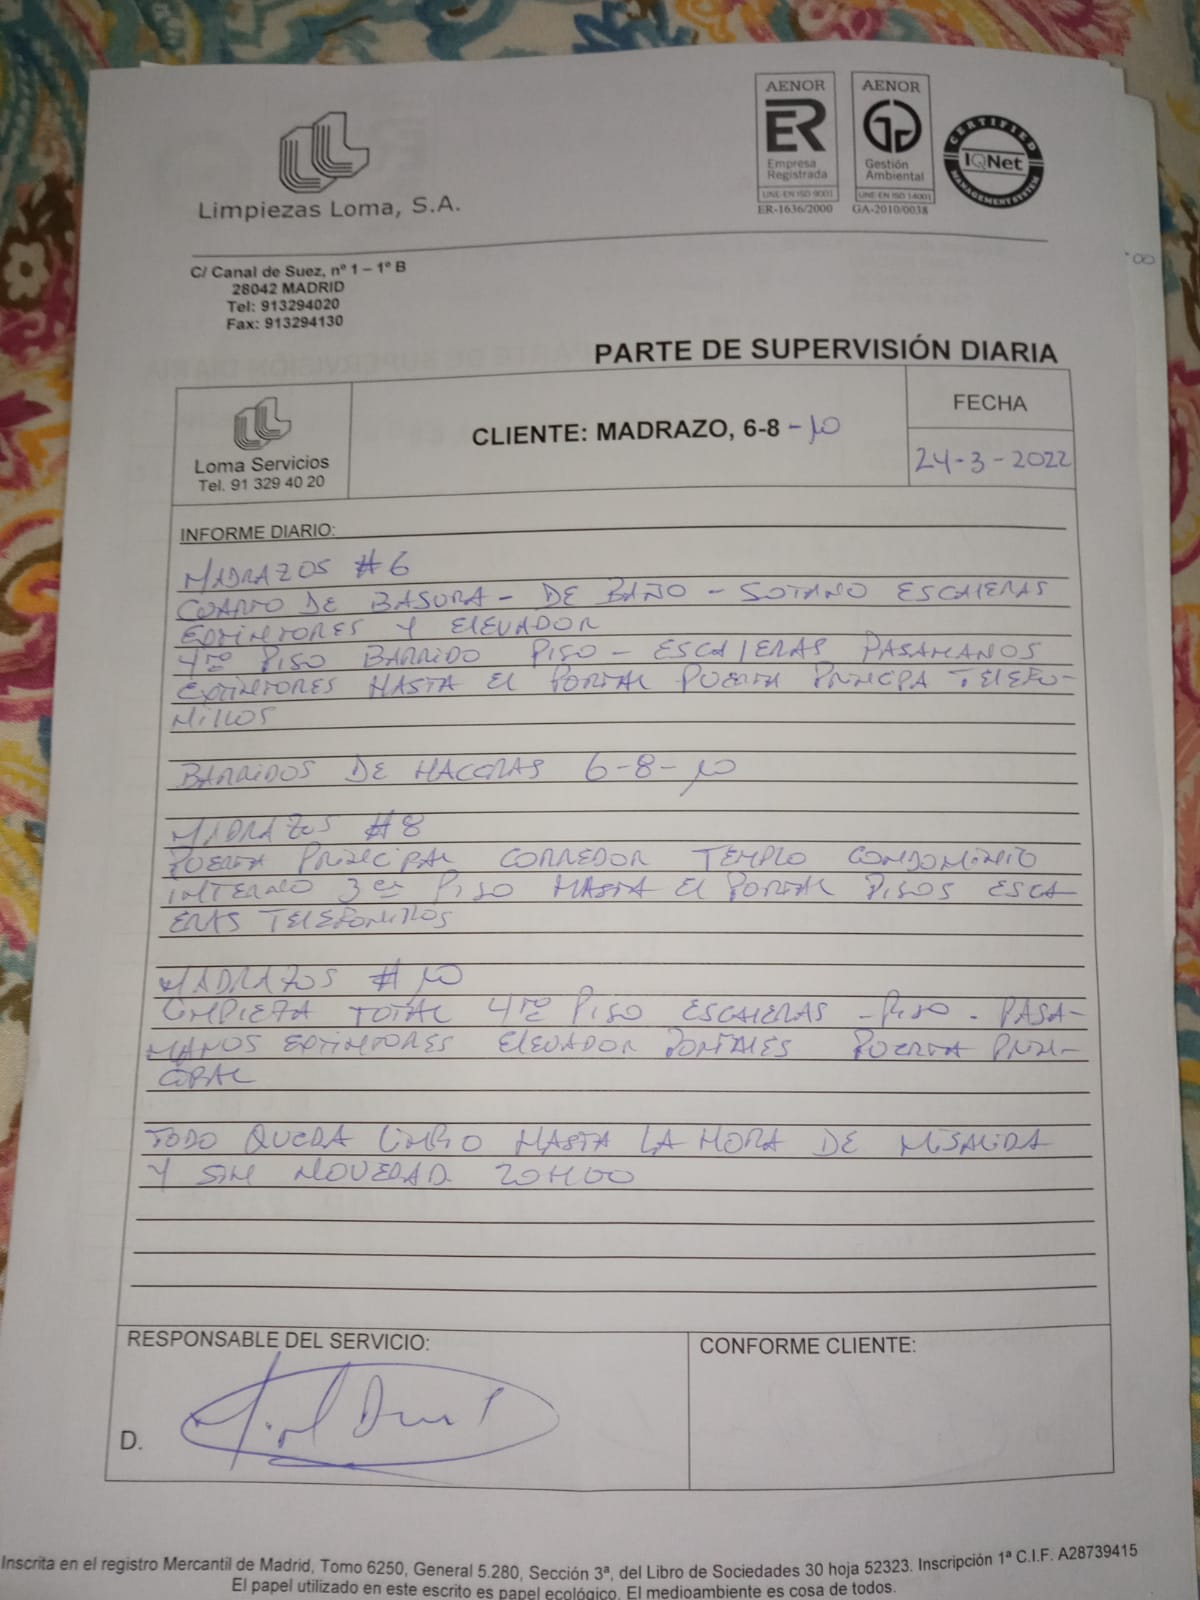 Limpiezas Loma, S.A.
AENOR
ER
Empresa
Registrada
UNE-EN ISO 9001
ER-1636/2000
AENOR
Gestión
Ambiental
UNE-EN ISO 14001
GA-2010/0038
CERTIFIED
IQNet
MANAGEMENT SYSTEM
C/ Canal de Suez, nº 1 – 1º B
28042 MADRID
Tel: 913294020
Fax: 913294130
PARTE DE SUPERVISIÓN DIARIA
Loma Servicios
Tel. 91 329 40 20
CLIENTE: MADRAZO, 6-8 - 10
FECHA
24-3-2022
INFORME DIARIO:
MADRAZOS #6
CUARTO DE BASURA - DE BAÑO - SOTANO ESCALERAS
EXTINTORES Y ELEVADOR
4TO PISO BARRIDO PISO - ESCALERAS PASAMANOS
EXTINTORES HASTA El PORTAL PUERTA PRINCIPA TELEFO-
NILLOS
BARRIDOS DE HACERAS 6-8-10
MADRAZOS #8
PUERTA PRINCIPAL CORREDOR TEMPLO CONDOMINIO
INTERNO 3er PISO HASTA El PORTAL PISOS ESCA
ERAS TELEFONILLOS
MADRAZOS #10
LIMPIEZA TOTAL 4TO PISO ESCALERAS - PISO - PASA-
MANOS EXTINTORES ELEVADOR PORTALES PUERTA PRIN-
CIPAL
TODO QUEDA LIMPIO HASTA LA HORA DE MI SALIDA
Y SIN NOVEDAD 20H00
RESPONSABLE DEL SERVICIO:
D.
CONFORME CLIENTE:
Inscrita en el registro Mercantil de Madrid, Tomo 6250, General 5.280, Sección 3ª, del Libro de Sociedades 30 hoja 52323. Inscripción 1ª C.I.F. A28739415
El papel utilizado en este escrito es papel ecológico. El medioambiente es cosa de todos.